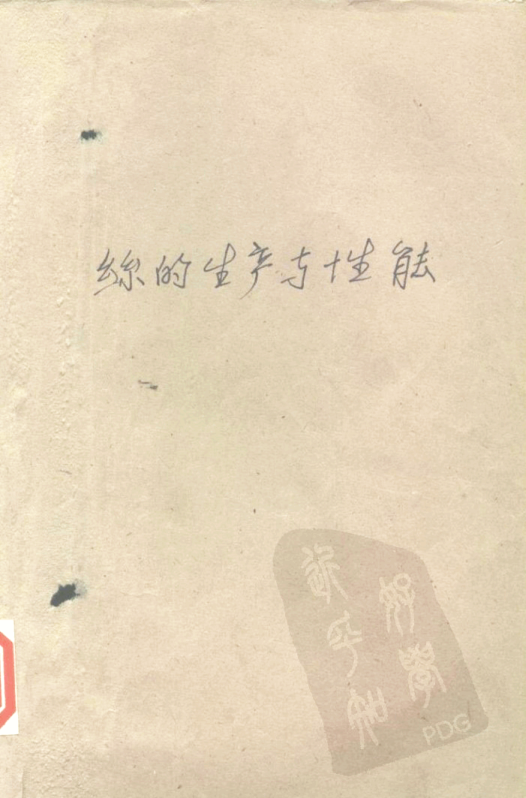 絲的生产与性能
好學
近乎知
PDG